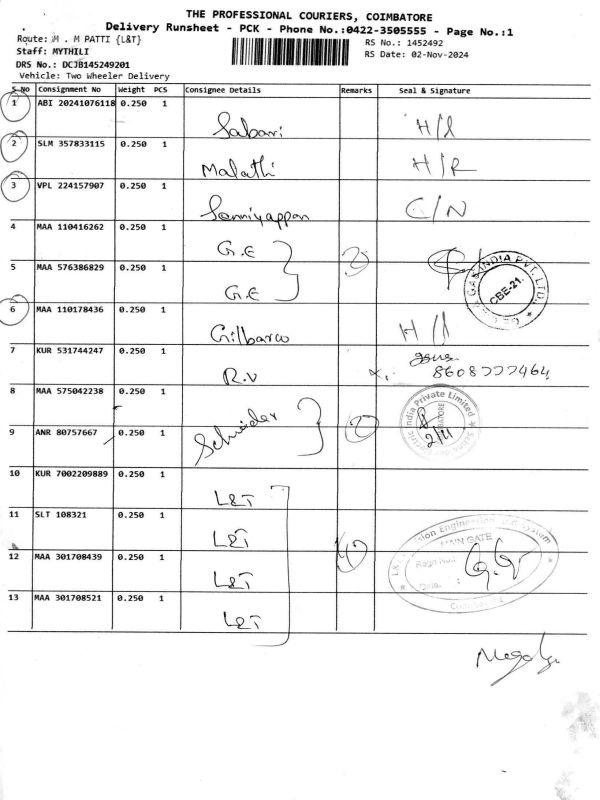 THE PROFESSIONAL COURIERS, COIMBATORE
Delivery Runsheet - PCK - Phone No.:0422-3505555 - Page No.:1
Route: M . M PATTI {L&T}
RS No.: 1452492
Staff: MYTHILI
RS Date: 02-Nov-2024
DRS No.: DCJB145249201
Vehicle: Two Wheeler Delivery
S No Consignment No Weight PCS Consignee Details Remarks Seal & Signature
1 ABI 20241076118 0.250 1
Sabari H/
2 SLM 357833115 0.250 1
Malathi H/R
3 VPL 224157907 0.250 1
Sanniyappan C/N
4 MAA 110416262 0.250 1
G.E
5 MAA 576386829 0.250 1
G.E
GAS INDIA PVT. LTD.
CBE-21.
6 MAA 110178436 0.250 1
Gilbarco H/
7 KUR 531744247 0.250 1
R.V
8608777464
8 MAA 575042238 0.250 1
Schnieder
India Private Limited
2/11
9 ANR 80757667 0.250 1
10 KUR 7002209889 0.250 1
L&T
11 SLT 108321 0.250 1
L&T
Engineering and System
MAIN GATE
12 MAA 301708439 0.250 1
L&T
Date. :
13 MAA 301708521 0.250 1
L&T